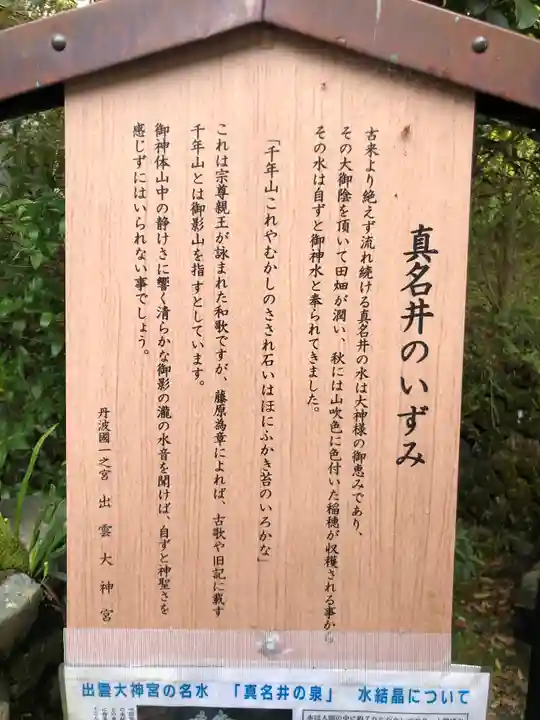 真名井のいずみ
古来より絶えず流れ続ける真名井の水は大神様の御恵みであり、
その大御陰を頂いて田畑が潤い、秋には山吹色に色付いた稲穂が収穫される事から
その水は自ずと御神水と奉られてきました。
「千年山これやむかしのさざれ石いはほにふかき苔のいろかな」
これは宗尊親王が詠まれた和歌ですが、藤原為章によれば、古歌や旧記に載す
千年山とは御影山を指すとしています。
御神体山中の静けさに響く清らかな御影の瀧の水音を聞けば、自ずと神聖さを
感じずにはいられない事でしょう。
丹波國一之宮 出雲大神宮
出雲大神宮の名水 「真名井の泉」 水結晶について